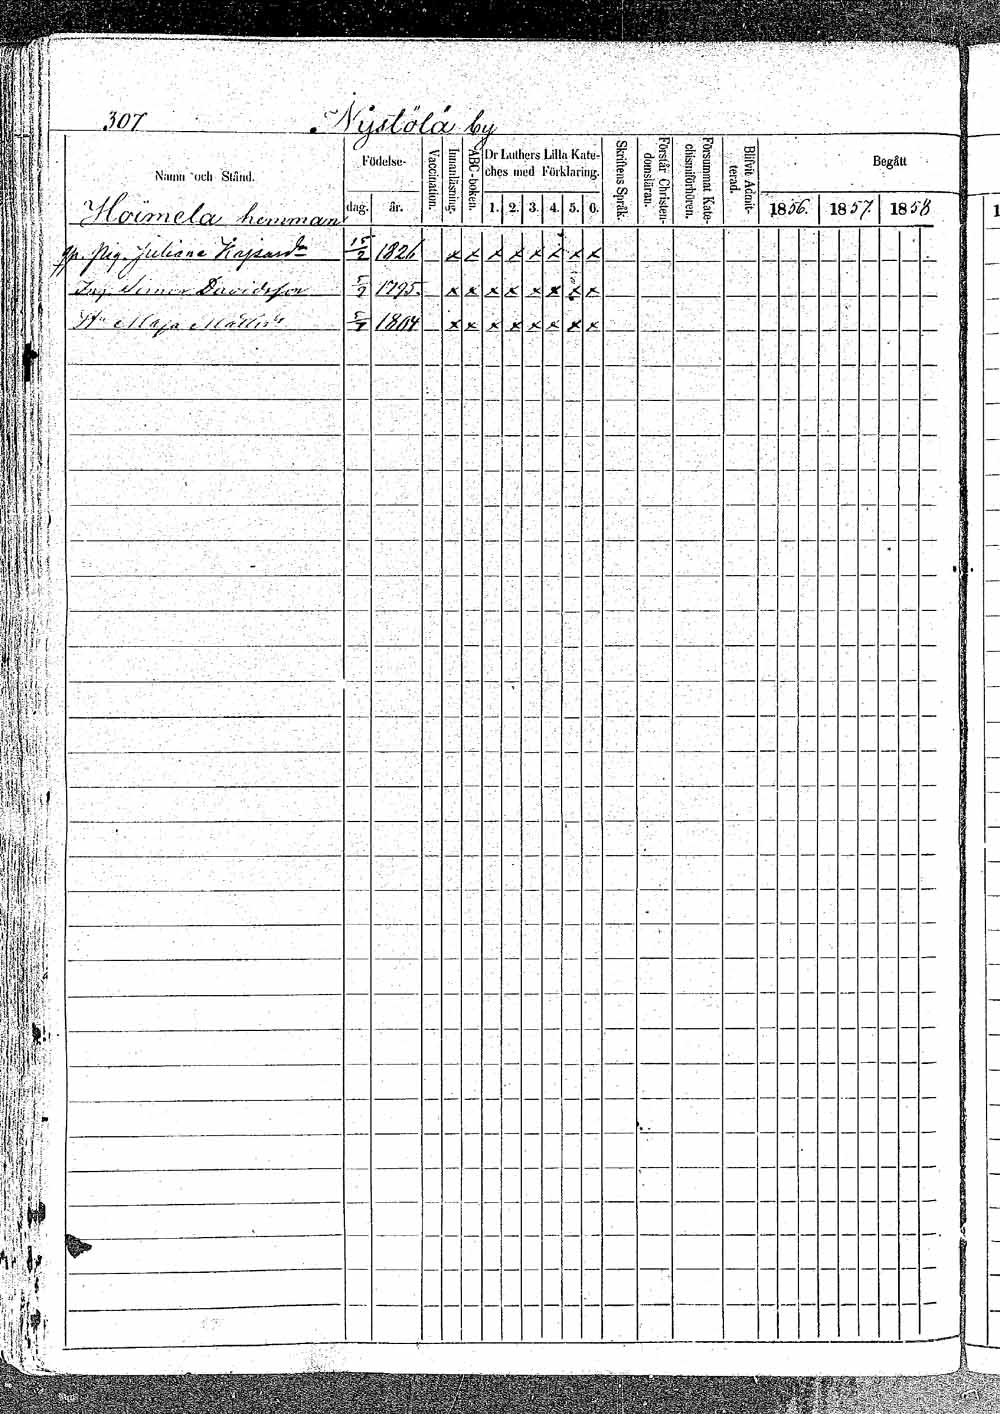 307 Nystölä by
Namn och Stånd. Födelse- dag. år. Vaccination. Innanläsning. ABC-boken. Dr Luthers Lilla Kateches med Förklaring. 1. 2. 3. 4. 5. 6. Skriftens Språk. Förstår Christendomsläran. Försummat Katechismiförhören. Blifvit Admitterad. Begått 1856. 1857. 1858 1
Hoimela hemman
Pig. Juliana Kajsand:r 15/2 1826 x x x x x x x x
Inh. Simon Davidsson 5/7 1795. x x x x x x x x
H:u Maja Matts 5/7 1804 x x x x x x x x